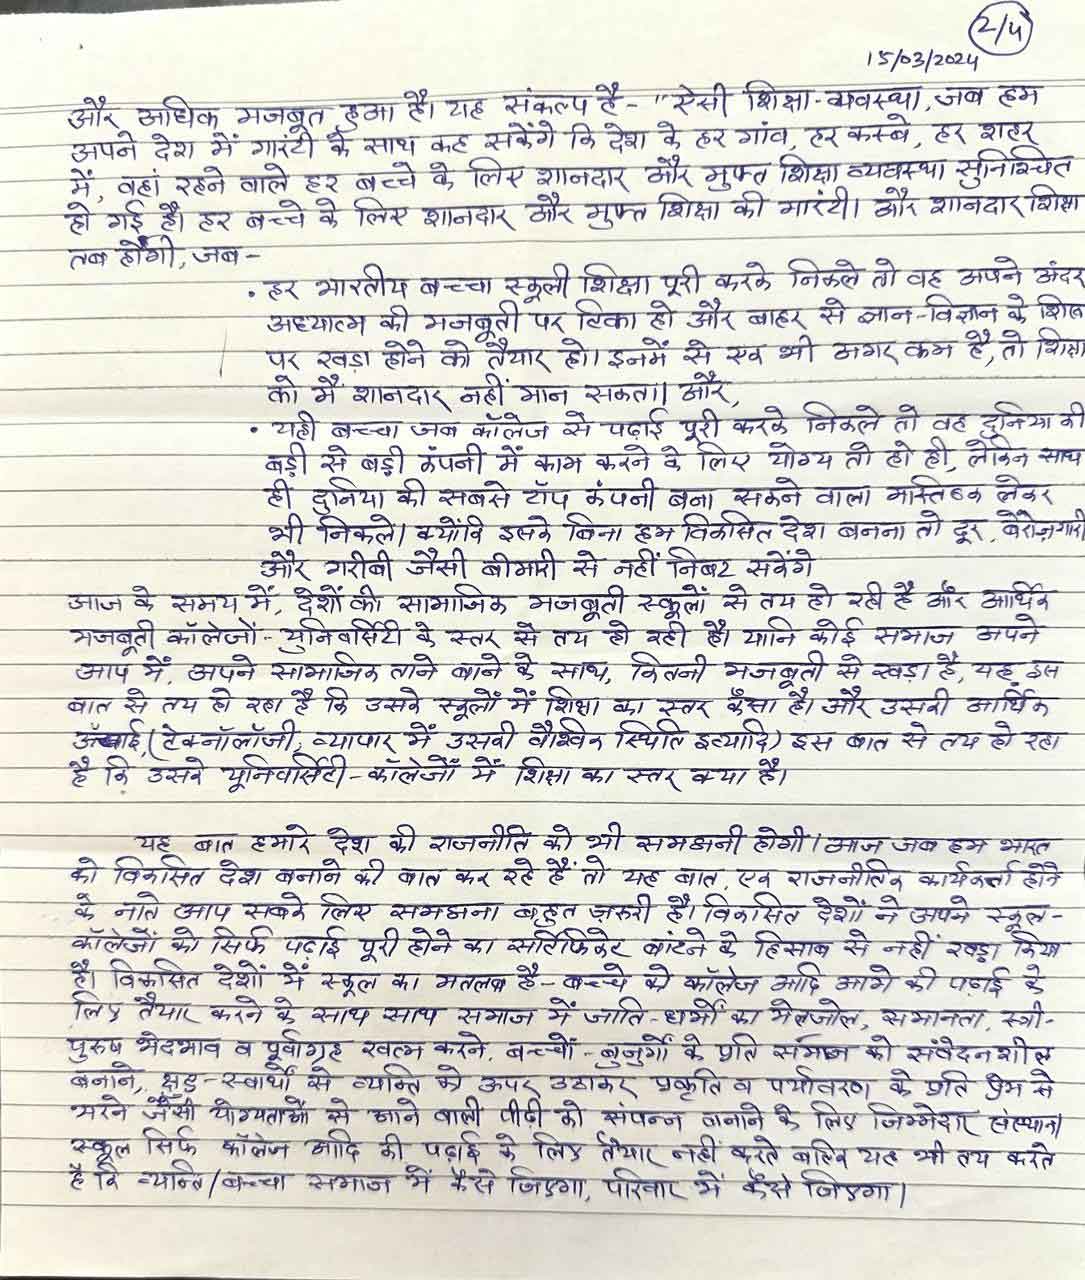 2/4
15/03/2024
और अधिक मजबूत हुआ है। यह संकल्प है- "ऐसी शिक्षा-व्यवस्था, जब हम
अपने देश में गारंटी के साथ कह सकेंगे कि देश के हर गांव, हर कस्बे, हर शहर
में, वहां रहने वाले हर बच्चे के लिए शानदार और मुफ्त शिक्षा व्यवस्था सुनिश्चित
हो गई है। हर बच्चे के लिए शानदार और मुफ्त शिक्षा की गारंटी। और शानदार शिक्षा
तब होगी, जब-
• हर भारतीय बच्चा स्कूली शिक्षा पूरी करके निकले तो वह अपने अंदर
अध्यात्म की मजबूती पर टिका हो और बाहर से ज्ञान-विज्ञान के शिखर
पर खड़ा होने को तैयार हो। इनमें से एक भी अगर कम है, तो शिक्षा
को मैं शानदार नहीं मान सकता। और,
• यही बच्चा जब कॉलेज से पढ़ाई पूरी करके निकले तो वह दुनिया की
बड़ी से बड़ी कंपनी में काम करने के लिए योग्य तो हो ही, लेकिन साथ
ही दुनिया की सबसे टॉप कंपनी बना सकने वाला मस्तिष्क लेकर
भी निकले। क्योंकि इसके बिना हम विकसित देश बनना तो दूर, बेरोज़गारी
और गरीबी जैसी बीमारी से नहीं निबट सकेंगे
आज के समय में, देशों की सामाजिक मजबूती स्कूलों से तय हो रही है और आर्थिक
मजबूती कॉलेजों-युनिवर्सिटी के स्तर से तय हो रही है। यानि कोई समाज अपने
आप में, अपने सामाजिक ताने बाने के साथ, कितनी मजबूती से खड़ा है, यह इस
बात से तय हो रहा है कि उसके स्कूलों में शिक्षा का स्तर कैसा है। और उसकी आर्थिक
ऊंचाई, (टेक्नॉलॉजी, व्यापार में उसकी वैश्विक स्थिति इत्यादि) इस बात से तय हो रहा
है कि उसके यूनिवर्सिटी-कॉलेजों में शिक्षा का स्तर क्या है।
यह बात हमारे देश की राजनीति को भी समझनी होगी। आज जब हम भारत
को विकसित देश बनाने की बात कर रहे हैं तो यह बात, एक राजनीतिक कार्यकर्ता होने
के नाते आप सबके लिए समझना बहुत ज़रूरी है। विकसित देशों ने अपने स्कूल-
कॉलेजों को सिर्फ पढ़ाई पूरी होने का सर्टिफिकेट बांटने के हिसाब से नहीं खड़ा किया
है। विकसित देशों में स्कूल का मतलब है- बच्चे को कॉलेज आदि आगे की पढ़ाई के
लिए तैयार करने के साथ साथ समाज में जाति-धर्मों का मेलजोल, समानता, स्त्री-
पुरुष भेदभाव व पूर्वाग्रह खत्म करने, बच्चों-बुजुर्गों के प्रति समाज को संवेदनशील
बनाने, क्षुद्र-स्वार्थों से व्यक्ति को ऊपर उठाकर प्रकृति व पर्यावरण के प्रति प्रेम से
भरने जैसी योग्यताओं से आने वाली पीढ़ी को संपन्न बनाने के लिए जिम्मेदार संस्थान।
स्कूल सिर्फ कॉलेज आदि की पढ़ाई के लिए तैयार नहीं करते बल्कि यह भी तय करते
है कि व्यक्ति/बच्चा समाज में कैसे जिएगा, परिवार में कैसे जिएगा।